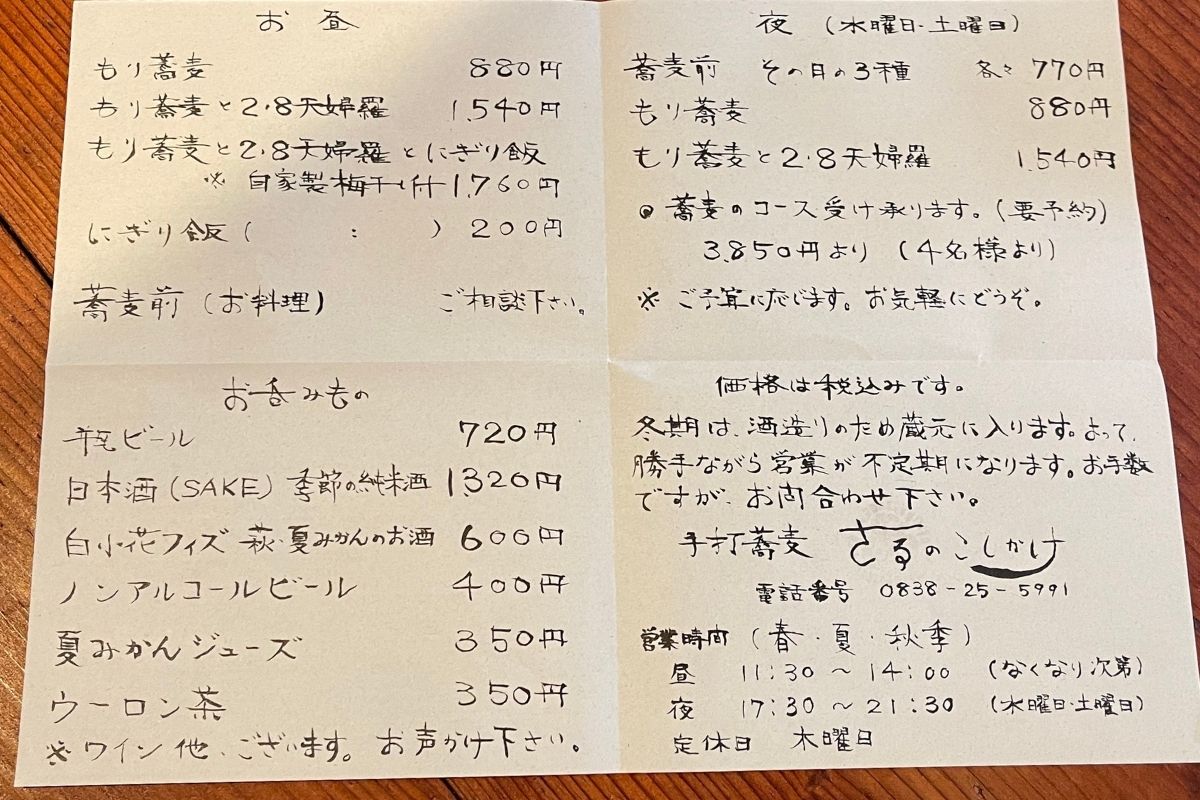 お昼
もり蕎麦 880円
もり蕎麦と2・8天婦羅 1,540円
もり蕎麦と2・8天婦羅とにぎり飯
※ 自家製梅干し付 1,760円
にぎり飯( : ) 200円
蕎麦前(お料理) ご相談下さい。
夜 (水曜日・土曜日)
蕎麦前 その日の3種 各々 770円
もり蕎麦 880円
もり蕎麦と2・8天婦羅 1,540円
◎ 蕎麦のコース受け承ります。(要予約)
3,850円より (4名様より)
※ ご予算に応じます。お気軽にどうぞ。
お呑みもの
瓶ビール 720円
日本酒(SAKE) 季節の純米酒 1320円
白小花フィズ 萩・夏みかんのお酒 600円
ノンアルコールビール 400円
夏みかんジューズ 350円
ウーロン茶 350円
※ワイン他、ございます。お声かけ下さい。
価格は税込みです。
冬期は、酒造りのため蔵元に入ります。よって、
勝手ながら営業が不定期になります。お手数
ですが、お問合わせ下さい。
手打蕎麦 さるのこしかけ
電話番号 0838-25-5991
営業時間 (春・夏・秋季)
昼 11:30～14:00 (なくなり次第)
夜 17:30～21:30 (水曜日・土曜日)
定休日 木曜日